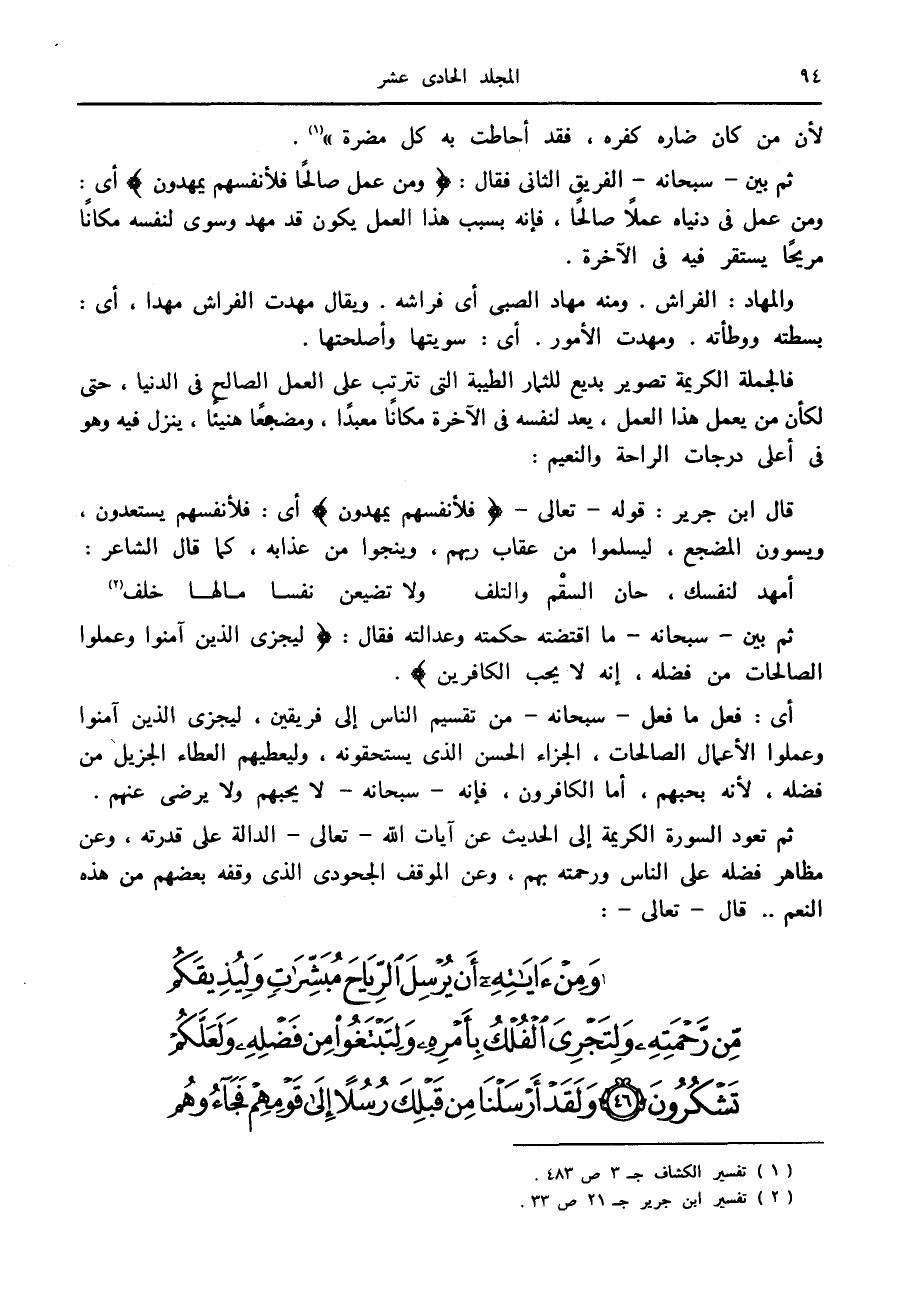 ٩٤ المجلد الحادى عشر
لأن من كان ضاره كفره ، فقد أحاطت به كل مضرة »(١) .
ثم بين – سبحانه – الفريق الثانى فقال : ﴿ ومن عمل صالحًا فلأنفسهم يمهدون ﴾ أى :
ومن عمل فى دنياه عملًا صالحًا ، فإنه بسبب هذا العمل يكون قد مهد وسوى لنفسه مكانًا
مريحًا يستقر فيه فى الآخرة .
والمهاد : الفراش . ومنه مهاد الصبى أى فراشه . ويقال مهدت الفراش مهدا ، أى :
بسطته ووطأته . ومهدت الأمور . أى : سويتها وأصلحتها .
فالجملة الكريمة تصوير بديع للثمار الطيبة التى تترتب على العمل الصالح فى الدنيا ، حتى
لكأن من يعمل هذا العمل ، يعد لنفسه فى الآخرة مكانًا معبدًا ، ومضجعًا هنيئًا ، ينزل فيه وهو
فى أعلى درجات الراحة والنعيم :
قال ابن جرير : قوله – تعالى – ﴿ فلأنفسهم يمهدون ﴾ أى : فلأنفسهم يستعدون ،
ويسوون المضجع ، ليسلموا من عقاب ربهم ، وينجوا من عذابه ، كما قال الشاعر :
أمهد لنفسك ، حان السقْم والتلف ولا تضيعن نفسا مالها خلف(٢)
ثم بين – سبحانه – ما اقتضته حكمته وعدالته فقال : ﴿ ليجزى الذين آمنوا وعملوا
الصالحات من فضله ، إنه لا يحب الكافرين ﴾ .
أى : فعل ما فعل – سبحانه – من تقسيم الناس إلى فريقين ، ليجزى الذين آمنوا
وعملوا الأعمال الصالحات ، الجزاء الحسن الذى يستحقونه ، وليعطيهم العطاء الجزيل من
فضله ، لأنه يحبهم ، أما الكافرون ، فإنه – سبحانه – لا يحبهم ولا يرضى عنهم .
ثم تعود السورة الكريمة إلى الحديث عن آيات الله – تعالى – الدالة على قدرته ، وعن
مظاهر فضله على الناس ورحمته بهم ، وعن الموقف الجحودى الذى وقفه بعضهم من هذه
النعم .. قال – تعالى – :
وَمِنْ ءَايَٰتِهِۦٓ أَن يُرْسِلَ ٱلرِّيَاحَ مُبَشِّرَٰتٍ وَلِيُذِيقَكُم
مِّن رَّحْمَتِهِۦ وَلِتَجْرِىَ ٱلْفُلْكُ بِأَمْرِهِۦ وَلِتَبْتَغُوا۟ مِن فَضْلِهِۦ وَلَعَلَّكُمْ
تَشْكُرُونَ ﴿٤٦﴾ وَلَقَدْ أَرْسَلْنَا مِن قَبْلِكَ رُسُلًا إِلَىٰ قَوْمِهِمْ فَجَآءُوهُم
( ١ ) تفسير الكشاف جـ ٣ ص ٤٨٣ .
( ٢ ) تفسير ابن جرير جـ ٢١ ص ٣٣ .